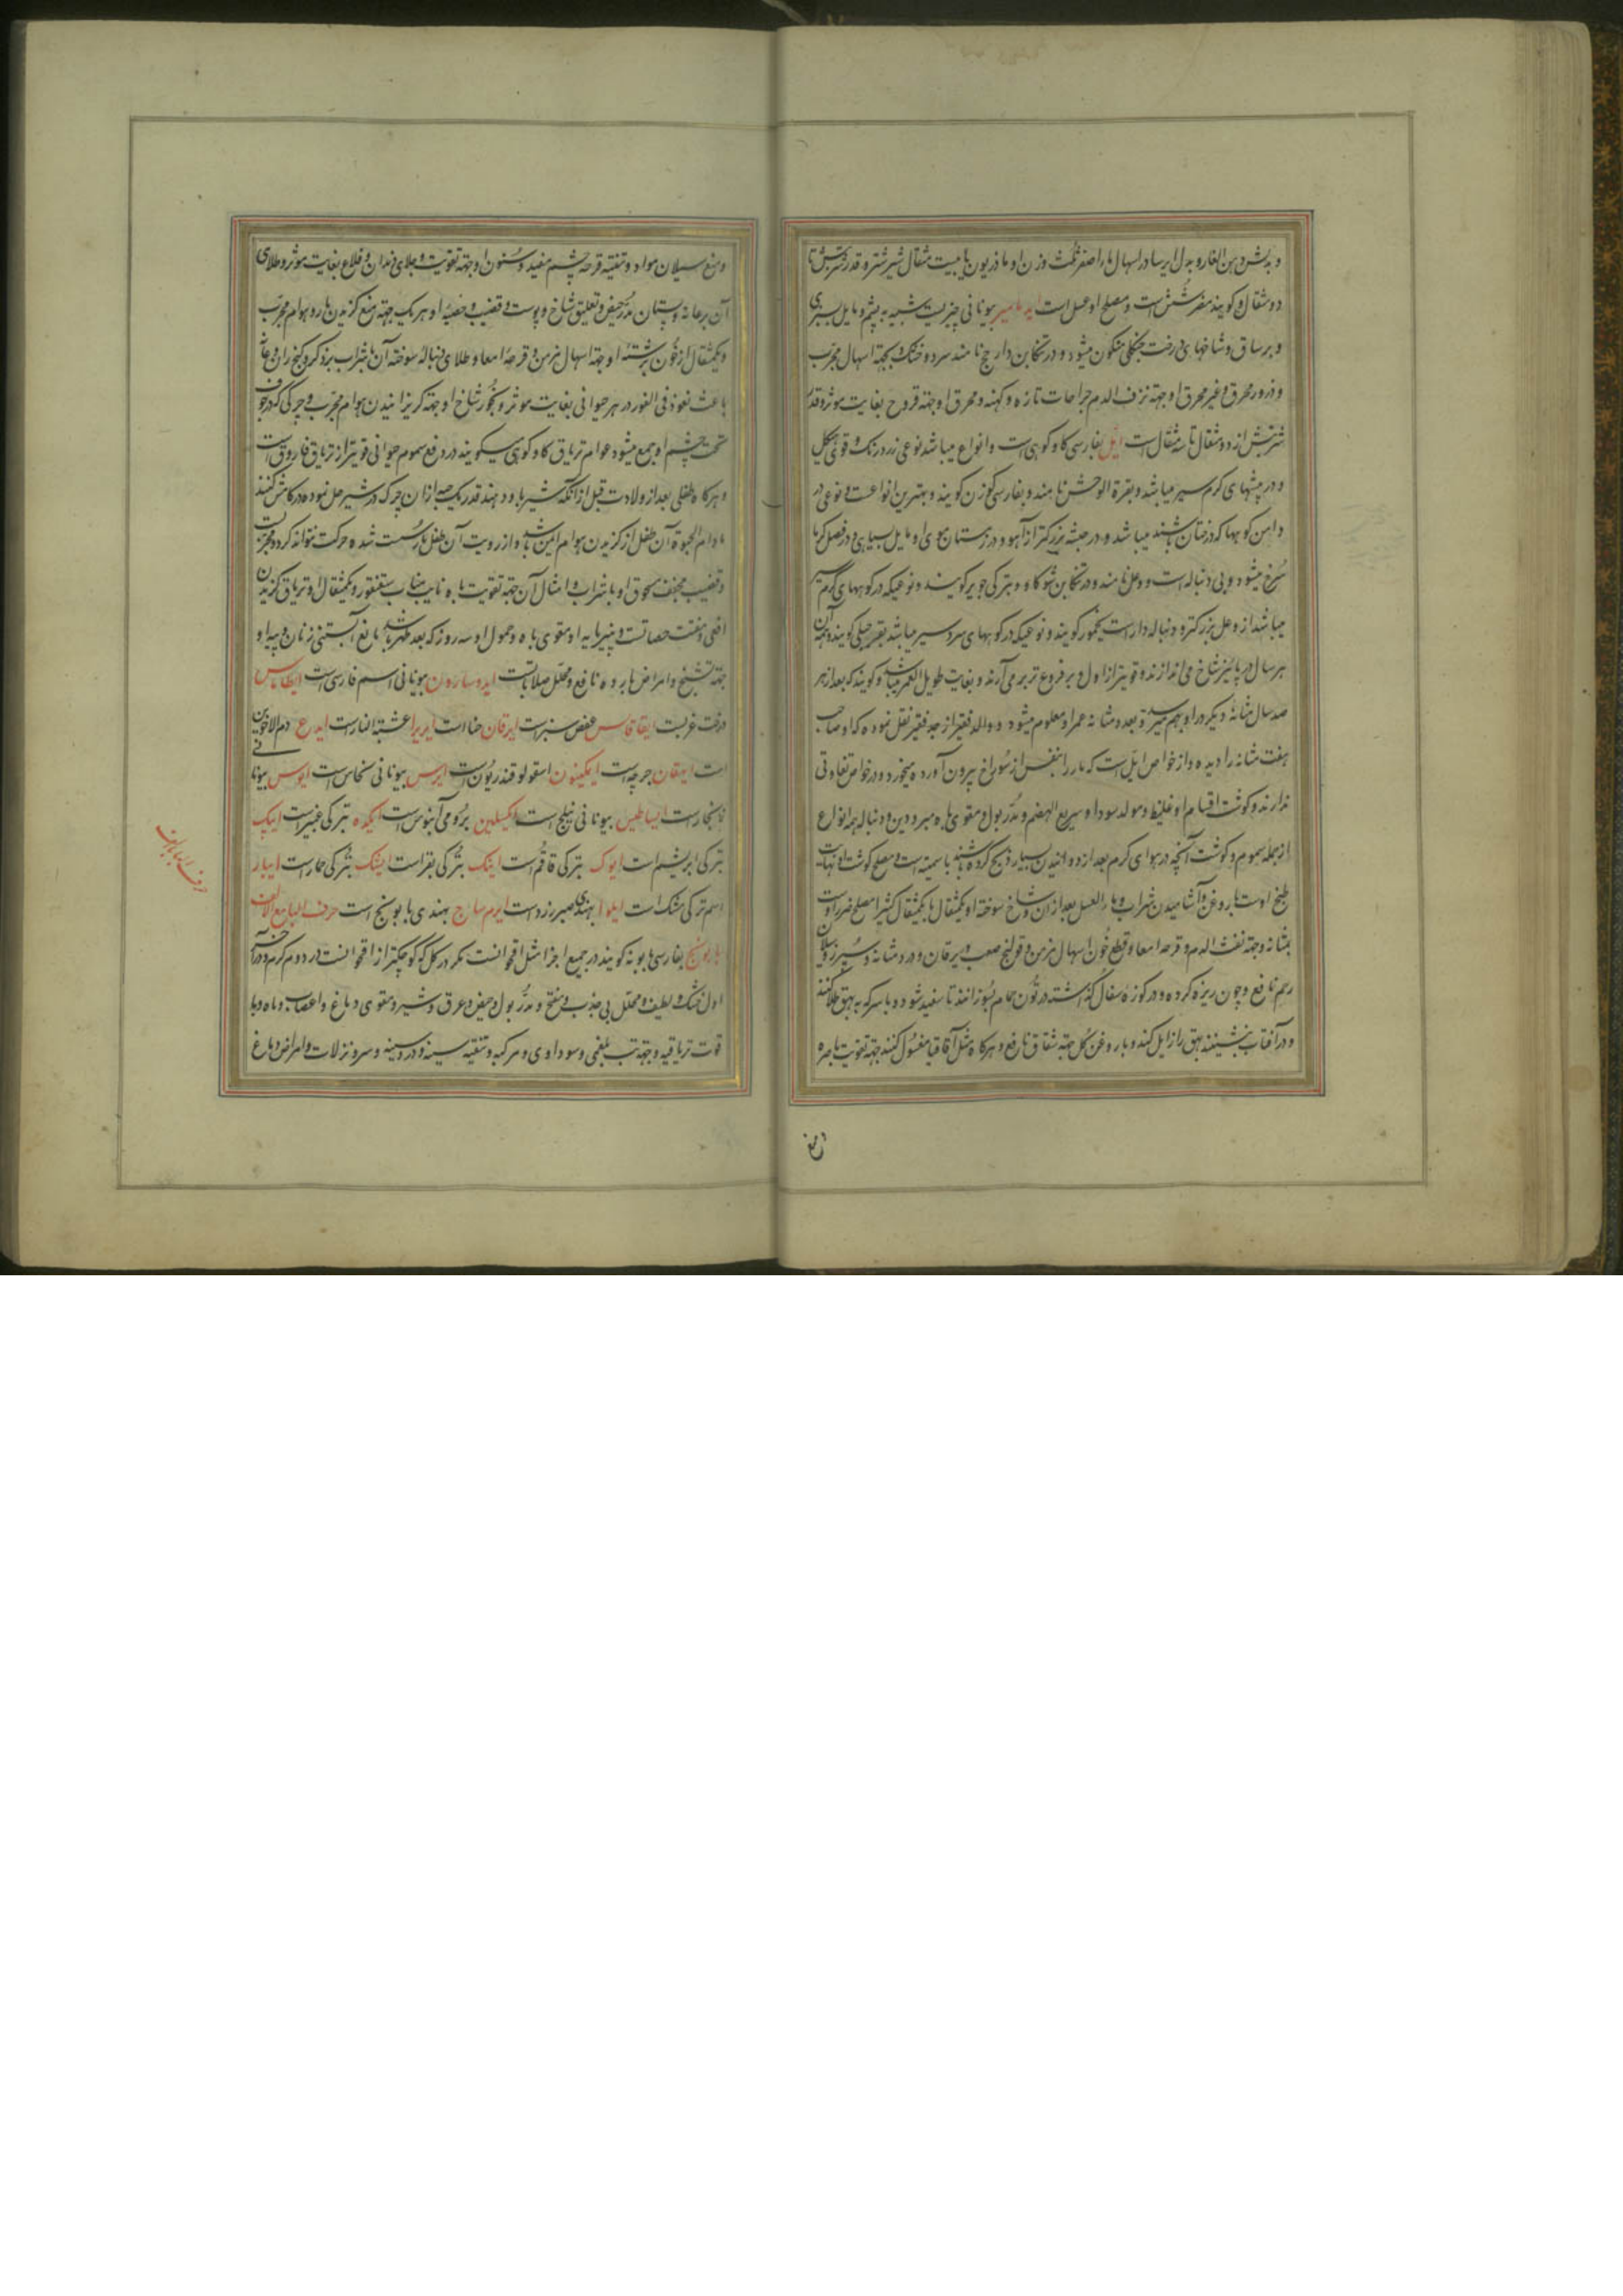 دو مثقال و کویند مضر شش است و مصلح او عسل است ایدمامیر بیونانی چیزیست شبیه به پشم و مایل بسبزی
و بر ساق و شاخهای درخت جنکلی متکون میشود و در تنکابن دارمج نامند سرد و خشک و بجهة اسهال مجرب
و ذرور محرق و غیر محرق او جهة نزف الدم جراحات تازه و کهنه و محرق او جهة قروح بغایت موثر و قدر
شربتش از دو مثقال تا سه مثقال است ایل بفارسی کاو کوهی است و انواع میباشد نوعی زرد رنک و قوی هیکل
و در بیشهای کرم سیر میباشد و بقرة الوحش نامند و بفارسی کوزن کویند و بهترین انواعست و نوعی در
دامن کوهها که درختان باشند میباشد و در جثه بزرکتر از آهو و در زمستان موی او مایل بسیاهی و در فصل کرما
سرخ میشود و بی دنباله است و وعل نامند و در تنکابن شوکا و و بترکی جویر کویند و نوعیکه در کوههای کرم سیر
میباشد از وعل بزرکتر و دنباله دار است یحمور کویند و نوعیکه در کوههای سردسیر میباشد بقر جبلی کویند و همه آن
هر سال در پائیز شاخ می اندازند و قویتر از اول و پر فروع تر بر می آرند و بغایت طویل العمر میباشد و کویند که بعد از هر
صد سال مثانهٔ دیکر در او بهم میرسد و بعدد مثانه عمر او معلوم میشود و والد فقیر از جد فقیر نقل نموده که او صاحب
هفت مثانه را دیده و از خواص ایل است که مار را بنفس از سوراخ بیرون آورده میخورد و در خواص تفاوتی
ندارند و کوشت اقسام او غلیظ و مولد سودا و سریع الهضم و مدر بول و مقوی باه مبرودین و دنباله همه انواع
از جمله سموم و کوشت آنچه در هوای کرم بعد از دوانیدن بسیار ذبح کرده باشند با سمیت است و مصلح کوشت او مهرا
طبخ اوست با روغن و آشامیدن شراب و ماء العسل بعد از آن و شاخ سوخته او یکمثقال با یکمثقال کثیرا مصلح ضرر اوست
بمثانه و جهة نفث الدم و قرحه امعا و قطع خون اسهال مزمن و قولنج صعب و یرقان و درد مثانه و سپرز و سیلان
رحم نافع و چون ریزه کرده و در کوزه سفال کذاشته در تون حمام بسوزانند تا سفید شود و با سرکه به بهق طلا کنند
و در آفتاب بنشینند بهق را زایل کند و با روغن کل جهة شقاق نافع و هرکاه مثل آقاقیا مغسول کنند جهة تقویت باصره
و منع سیلان مواد و تنقیه قرحه چشم مفید و سنون او جهة تقویت و جلای دندان و قلاع بغایت موثر و طلای
آن بر عانه و پستان مدر حیض و تعلیق شاخ و پوست و قضیب و خصیهٔ او هر یک جهة منع کزیدن مار و هوام مجرب
و یکمثقال از خون برشتهٔ او جهة اسهال مزمن و قرحهٔ امعا و طلای دنباله سوخته آن با شراب بر ذکر و کنج ران و
باعث نعوظ فی الفور در هر حیوانی بغایت موثر و بخور شاخ او جهة کریزانیدن هوام مجرب و چرکی که در جوف
تحت چشم او جمع میشود عوام تریاق کاو کوهی میکویند در دفع سموم حیوانی قویتر از تریاق فاروق است
و هرکاه طفلی بعد از ولادت قبل از آنکه شیر باو دهند قدر یک حبه از آن چرک در شیر حل نموده در کامش کنند
مادام الحیوة آن طفل از کزیدن هوام ایمن باشد و از رویت آن طفل مار سست شده حرکت نتواند کرد و مجربست
و قضیب مجفف مسحوق او با شراب و امثال آن جهة تقویت باه نایب مناب سقنقور و یکمثقال او تریاق کزیدن
افعی و مفتت حصاتست و پنیرمایه او مقوی باه و حمول او سه روز که بعد طهر باشد مانع آبستنی زنان و پیه او
جهة تشنج و امراض بارده نافع و محلل صلاباتست ایدوسارون بیونانی اسم فارسی است ایطاماس
درخت غربست ایقاقاس عفص سبز است ایرقان حنا است ایدیرا عشبة النار است ایدع دم الاخوین
است ایهقان جرجیر است ایمکینون اسقولوقندریون است ایرس بیونانی نحاس است ایوس بیونانی
زنجار است ایساطیس بیونانی نیلج است ایکسیلین برومی آبنوس است ایکده بترکی غبیرا است ایپک
بترکی ابریشم است ایوک بترکی قاقم است اینک بترکی بقر است ایشک بترکی حمار است ایپار
اسم ترکی مشک است ایلوا بهندی صبر زرد است ایرم ساج بهندی بابونج است حرف البا مع الالف
بابونج بفارسی بابونه کویند در جمیع اجزا مثل اقحوانست مکر در کل که کوچکتر از اقحوانست در دوم کرم و در آخر
اول خشک و لطیف و محلل بی جذب و مفتح و مدر بول و حیض و عرق و شیر و مقوی دماغ و اعصاب و باه و با
قوت تریاقیه و جهة تب بلغمی و سوداوی و مرکبه و تنقیه سینه و درد سینه و سر و نزلات و امراض دماغ